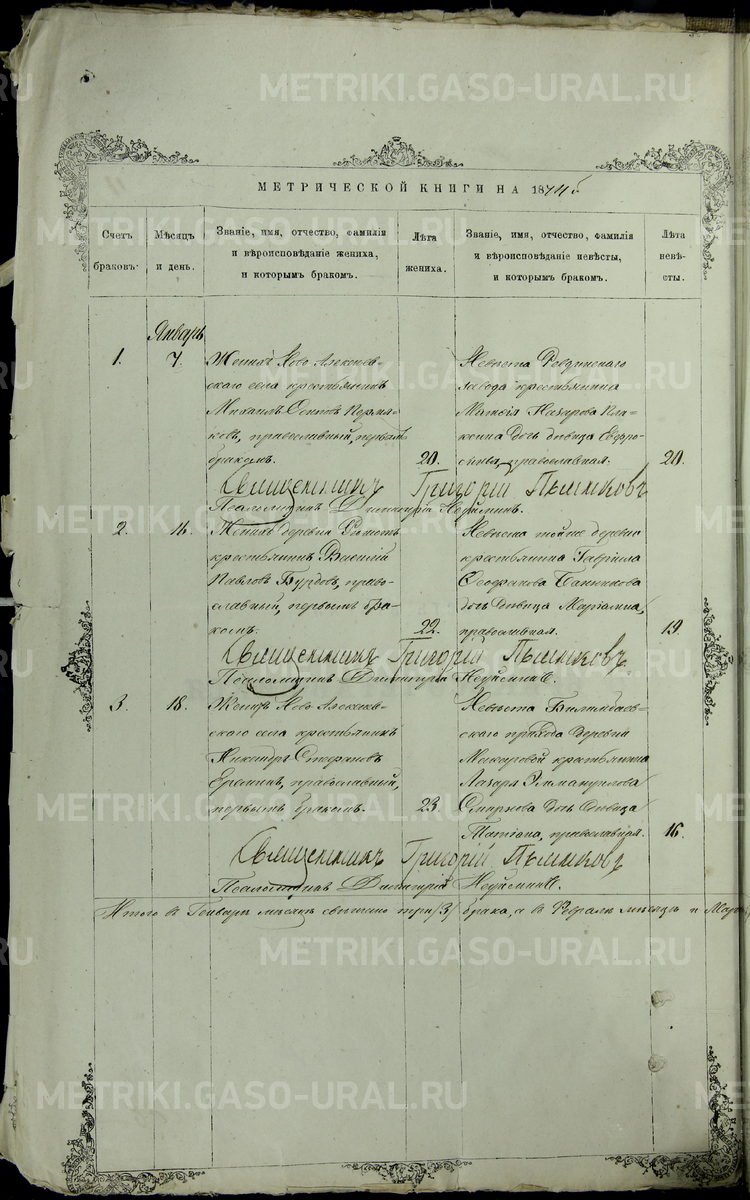 METRIKI.GASO-URAL.RU
МЕТРИЧЕСКОЙ КНИГИ НА 1874й
Счетъ браковъ.
Мѣсяцъ и день.
Званіе, имя, отчество, фамилія и вѣроисповѣданіе жениха, и которымъ бракомъ.
Лѣта жениха.
Званіе, имя, отчество, фамилія и вѣроисповѣданіе невѣсты, и которымъ бракомъ.
Лѣта невѣсты.
Январь
1. 7. Женихъ Ново Алексѣев-
скаго села крестьянинъ
Михаилъ Пермя-
ковъ, православный, первымъ
бракомъ.
20.
Невѣста Ревдинскаго
завода крестьянина
Матвѣя Назарова
дочь дѣвица Евфро-
синья, православная.
20.
Священникъ Григорій
Псаломщикъ
2. 16. Женихъ деревни
крестьянинъ Василій
Павловъ Бурдовъ, право-
славный, первымъ бра-
комъ.
22.
Невѣста той же деревни
крестьянина Гавріила
Феофанова Банникова
дочь дѣвица
православная.
19.
Священникъ Григорій
Псаломщикъ
3. 18. Женихъ Ново Алексѣев-
скаго села крестьянинъ
Никандръ Стефановъ
Ереминъ, православный,
первымъ бракомъ.
23
Невѣста Билимбаев-
скаго прихода деревни
Макаровой крестьянина
Лазаря Эммануилова
Смирнова дочь дѣвица
Татіана, православная.
16.
Священникъ Григорій
Псаломщикъ
Итого въ Генварѣ мѣсяцѣ три /3/ брака, а въ Февралѣ мѣсяцѣ и